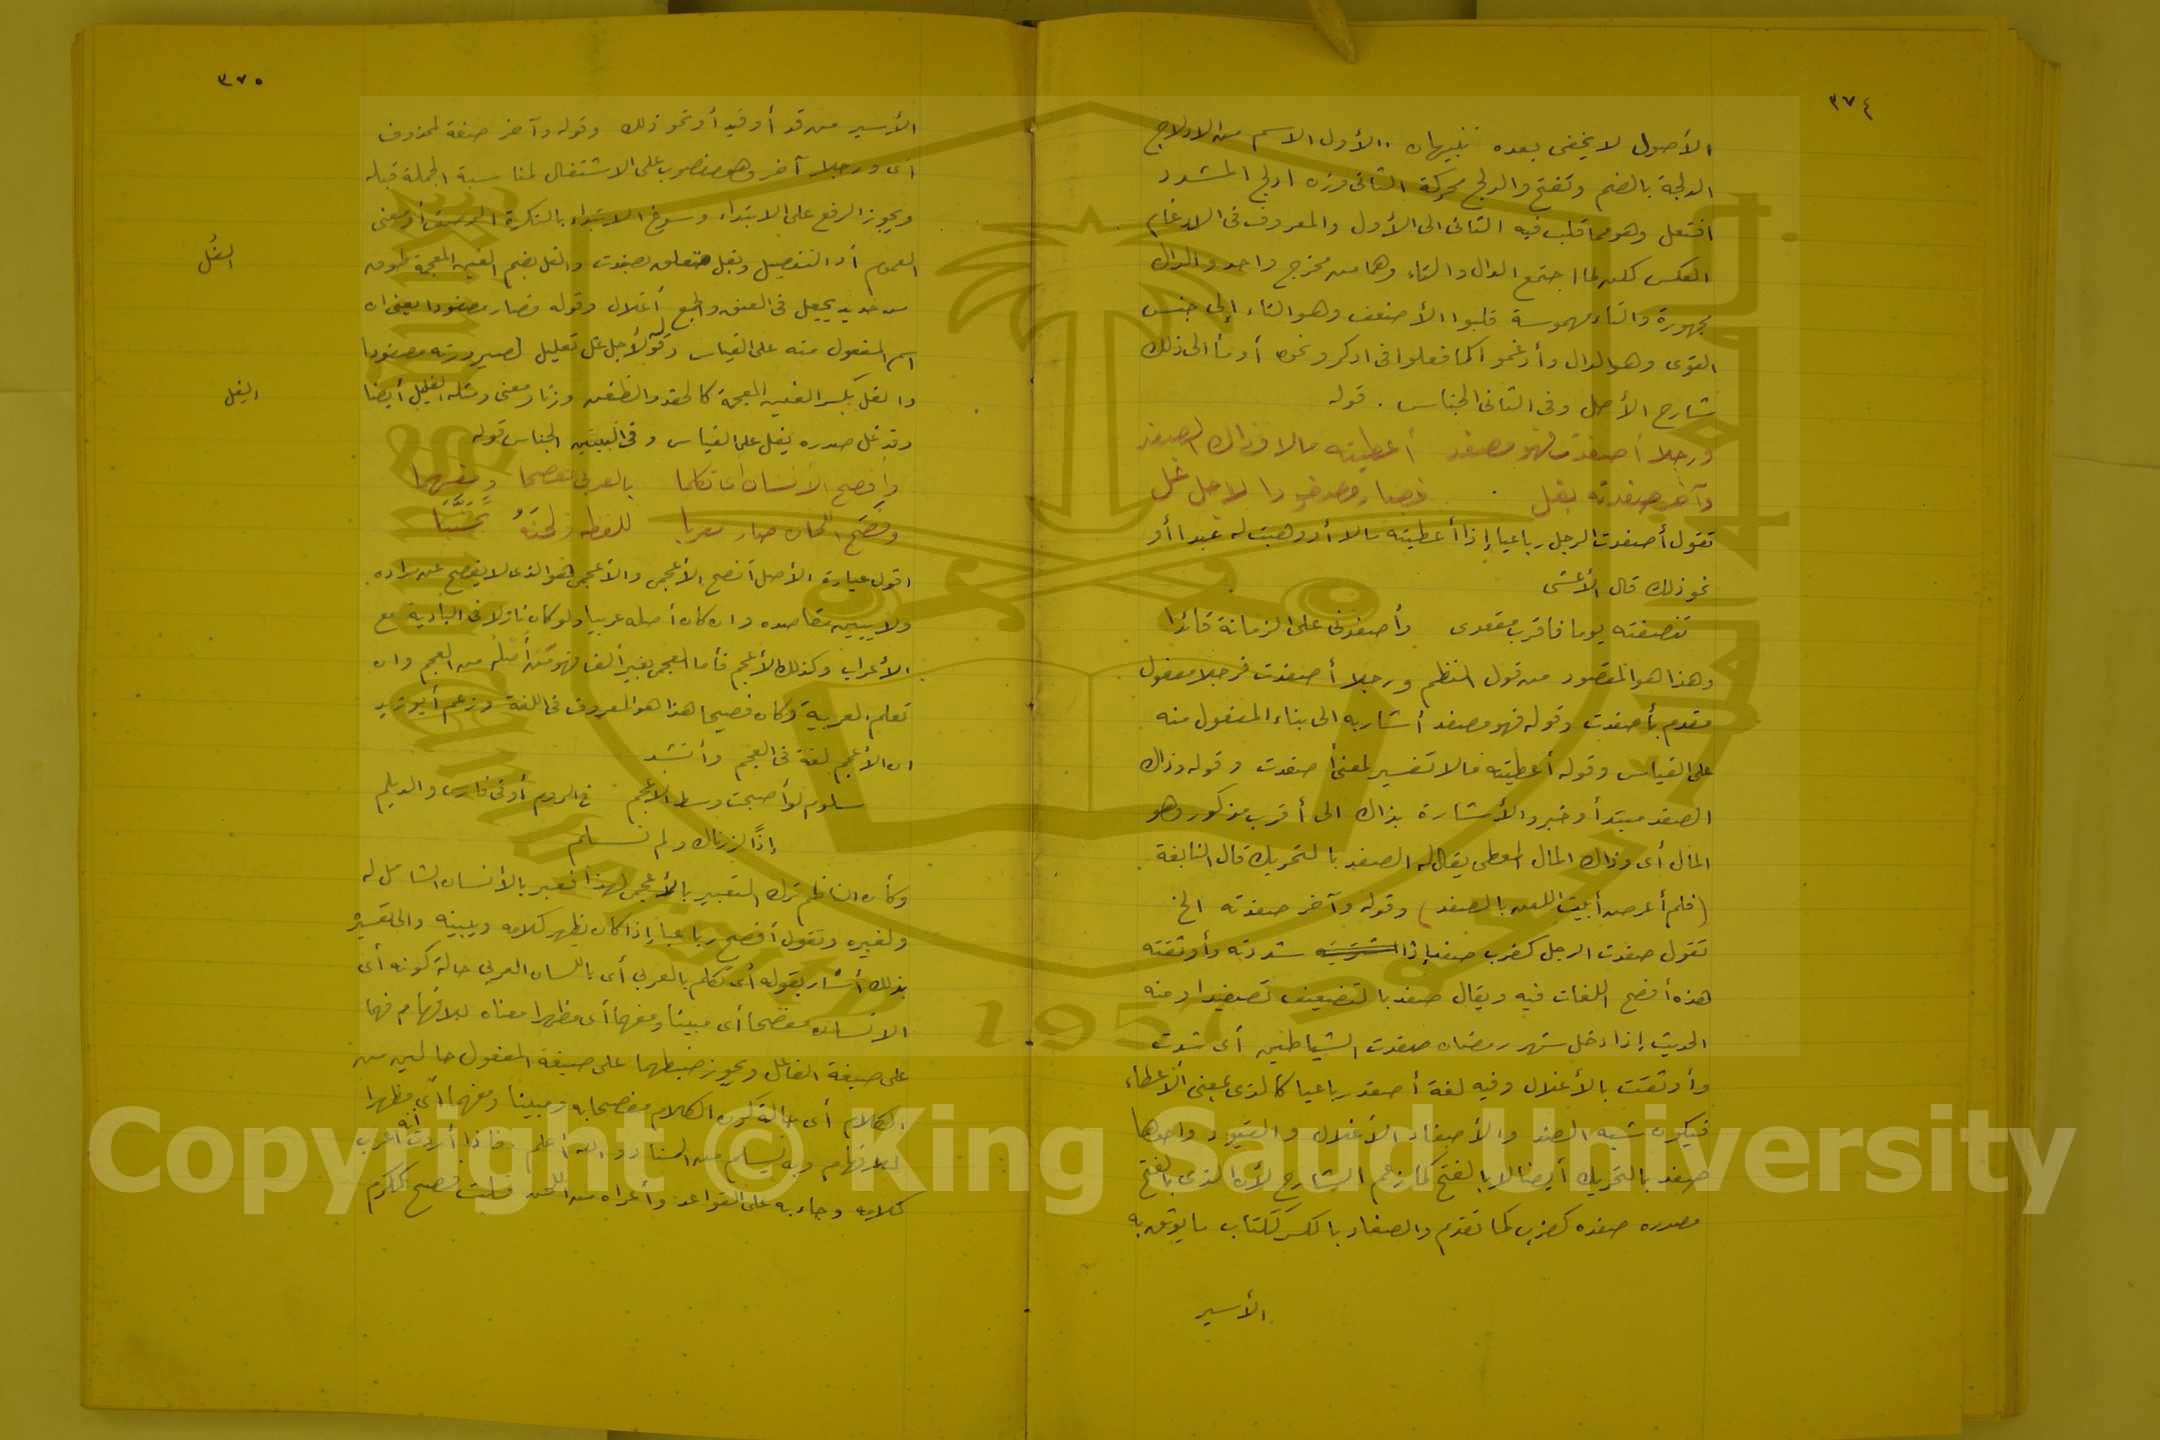 ٣٧٤
الأصول لا يخفى بعده تنبيهان الأول الاسم من الادلاج
الدلجة بالضم وتفتح والدلج محركة الثانى وزن ادلج المشدد
افتعل وهو مما قلب فيه الثانى الى الأول والمعروف فى الادغام
العكس لكن لما اجتمع الدال والتاء وهما من مخرج واحد والدال
مجهورة والتاء مهموسة قلبوا الأضعف وهو التاء إلى جنس
القوى وهو الدال وأدغموا كما فعلوا فى ادكر ونحوه أومأ الى ذلك
شارح الأصل وفى الثانى الجناس . قوله
ورجلا أصفدت فهو مصفد أعطيته مالا وذاك الصفد
وآخر صفدته بغل فصار مصفودا لاجل غل
تقول أصفدت الرجل رباعيا إذا أعطيته مالا أو وهبت له عبدا أو
نحو ذلك قال الأعشى
تضيفته يوما فاقرب مقعدى وأصفدنى على الزمانة قائدا
وهذا هو المقصود من قول النظم ورجلا أصفدت فرجلا مفعول
مقدم بأصفدت وقوله فهو مصفد أشار به الى بناء المفعول منه
على القياس وقوله أعطيته مالا تفسير لمعنى أصفدت وقوله وذاك
الصفد مبتدأ وخبر والأشارة بذاك الى أقرب مذكور وهو
المال أى وذاك المال المعطى يقال له الصفد بالتحريك قال النابغة
(فلم أعرض أبيت اللعن بالصفد) وقوله وآخر صفدته الخ
تقول صفدت الرجل كضرب صفدا إذا شددته وأوثقته
هذه أفصح اللغات فيه ويقال صفد بالتضعيف تصفيدا ومنه
الحديث إذا دخل شهر رمضان صفدت الشياطين أى شدت
وأوثقت بالأغلال وفيه لغة أصفد رباعيا كالذى بمعنى الاعطاء
فيكون شبه الضد والأصفاد الأغلال والقيود واحدها
صفد بالتحريك أيضا لا بالفتح كما زعم الشارح لأن الذى بالفتح
مصدره صفده كضرب كما تقدم والصفاد بالكسر ككتاب ما يوثق به
الأسير
٣٧٥
الأسير من قد أو قيد أو نحو ذلك وقوله وآخر صفة لمحذوف
أى ورجلا آخر وهو منصوب على الاشتغال لمناسبة الجملة قبله
ويجوز الرفع على الابتداء وسوغ الابتداء بالنكرة الوصف أو معنى
العموم أو التفصيل وبغل متعلق بصفدت والغل بضم الغين المعجمة طوق
الغُل
من حديد يجعل فى العنق والجمع أغلال وقوله فصار مصفودا يعنى ان
اسم المفعول منه على القياس وقوله لأجل غل تعليل لصيرورته مصفودا
والغل بكسر الغين المعجمة كالحقد والضغن وزنا ومعنى ومثله الغليل أيضا
الغِل
وقد غل صدره يغل على القياس وفى البيتين الجناس قوله
وأفصح الأنسان أى تكلما بالعربى مفصحا ومفهما
وفصح اللحان صار معربا للفظه ولحنه تجنبا
اقول عبارة الأصل أفصح الأعجمى والأعجمى هو الذى لا يفصح عن مراده
ولا يبين مقاصده وان كان أصله عربيا ولو كان نازلا فى البادية مع
الأعراب وكذلك الأعجم فأما العجمى بغير ألف فهو من أصله من العجم وان
تعلم العربية وكان فصيحا هذا هو المعروف فى اللغة وزعم أبو زيد
ان الأعجم لغة فى العجم وأنشد
سلوم لو أصبحت وسط الأعجم فى الروم أو فى فارس والديلم
إذًا لزرناك ولم نسلم
وكأن الناظم ترك التعبير بالأعجمى لهذا فعبر بالأنسان الشامل له
ولغيره وتقول أفصح رباعيا إذا كان يظهر كلامه ويبينه والى تفسيره
بذلك أشار بقوله أى تكلم بالعربى أى باللسان العربى حالة كونه أى
الانسان مفصحا أى مبينا ومفهما أى مظهرا معناه للافهام فهما
على صيغة الفاعل ويجوز ضبطهما على صيغة المفعول حالين من
الكلام أى حالة كون الكلام مفصحا به ومبينا ومفهما أى مظهرا
للافهام وبه يسلم من السناد والله أعلم . فاذا أردت أنه أعرب
كلامه وجاء به على القواعد وأعراه من اللحن قلت فصح ككرم
Copyright © King Saud University
1957